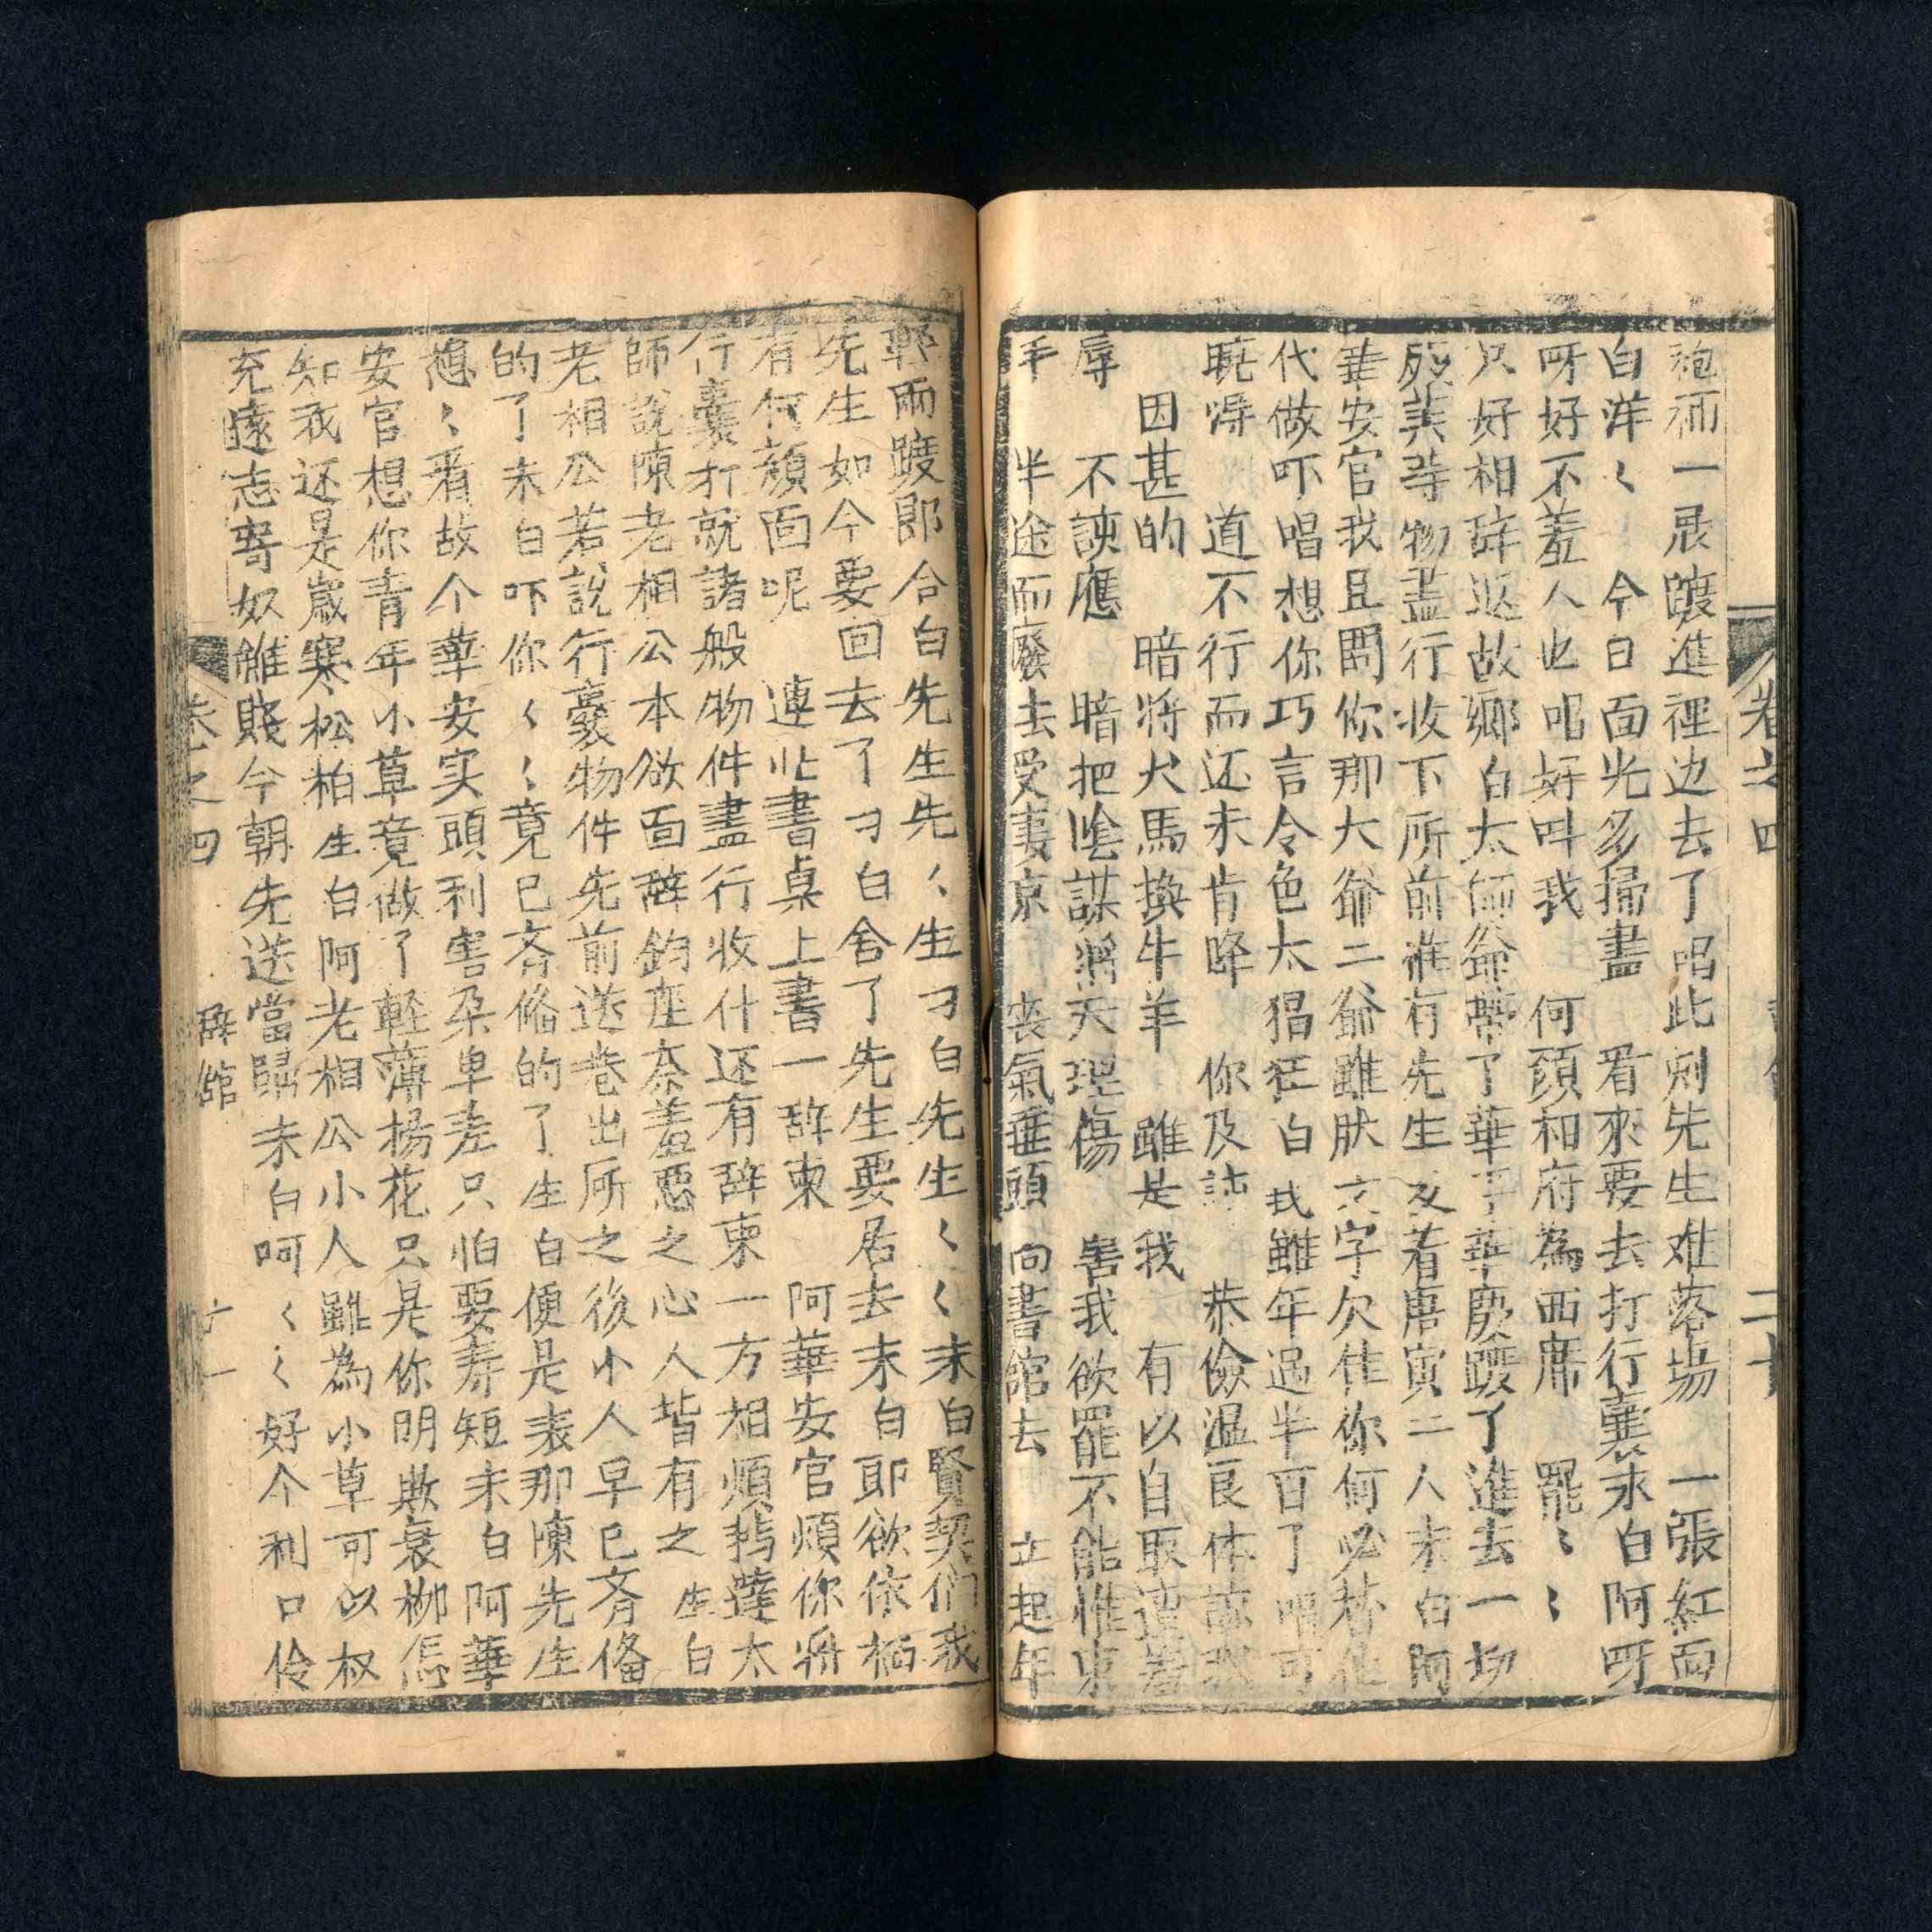 卷之四 二十
袍而一晃踱進裡边去了唱此刻先生难落塲 一張紅面
白洋〻 今日面光多掃盡 看來要去打行囊末白阿呀
呀好不羞人也唱好呌我 何顔和府為西席 罷〻〻
只好相辞返故鄉白太師爺帶了華平華慶踱了進去一切
殽羙等物盡行收下所前祗有先生及着唐寅二人末白阿
華安官我且問你那大爺二爺雖肰文字欠佳你何必替他
代做吓唱想你巧言令色太猖狂白我雖年过半百了唱可
曉得 道不行而还未肯降 你及說 恭儉温良体諒我
因甚的 暗將犬馬換牛羊 雖是我 有以自取遭羞
辱 不諌應 暗把陰謀將天理傷 害我欲罷不能惟束
手 半途而廢去受凄凉 丧氣垂頭向書舘去 立起年
輕兩踱郎合白先生先〻生刁白先生〻〻末白賢契們我
先生如今要回去了刁白舍了先生要居去末白耶欲依栖
有何顔面呢 連忙書桌上書一辞柬 阿華安官煩你將
行囊打就諸般物件盡行收什还有辞柬一方相煩轉達太
師說陳老相公本欲面辞鈞座奈羞惡之心人皆有之生白
老相公若說行囊物件先前送巷出所之後小人早已齐俻
的了末白吓你〻〻竟已齐俻的了生白便是表那陳先生
想〻看故个華安実頭利害朶卑差只怕要寿短末白阿華
安官想你青年小草竟做了輕薄楊花只是你明欺衰栁怎
知我还是嵗寒松柏生白阿老相公小人雖為小草可以权
充遠志寄奴雖賤今朝先送當歸末白呵〻〻好个利口伶
卷之四 辞舘 廿一